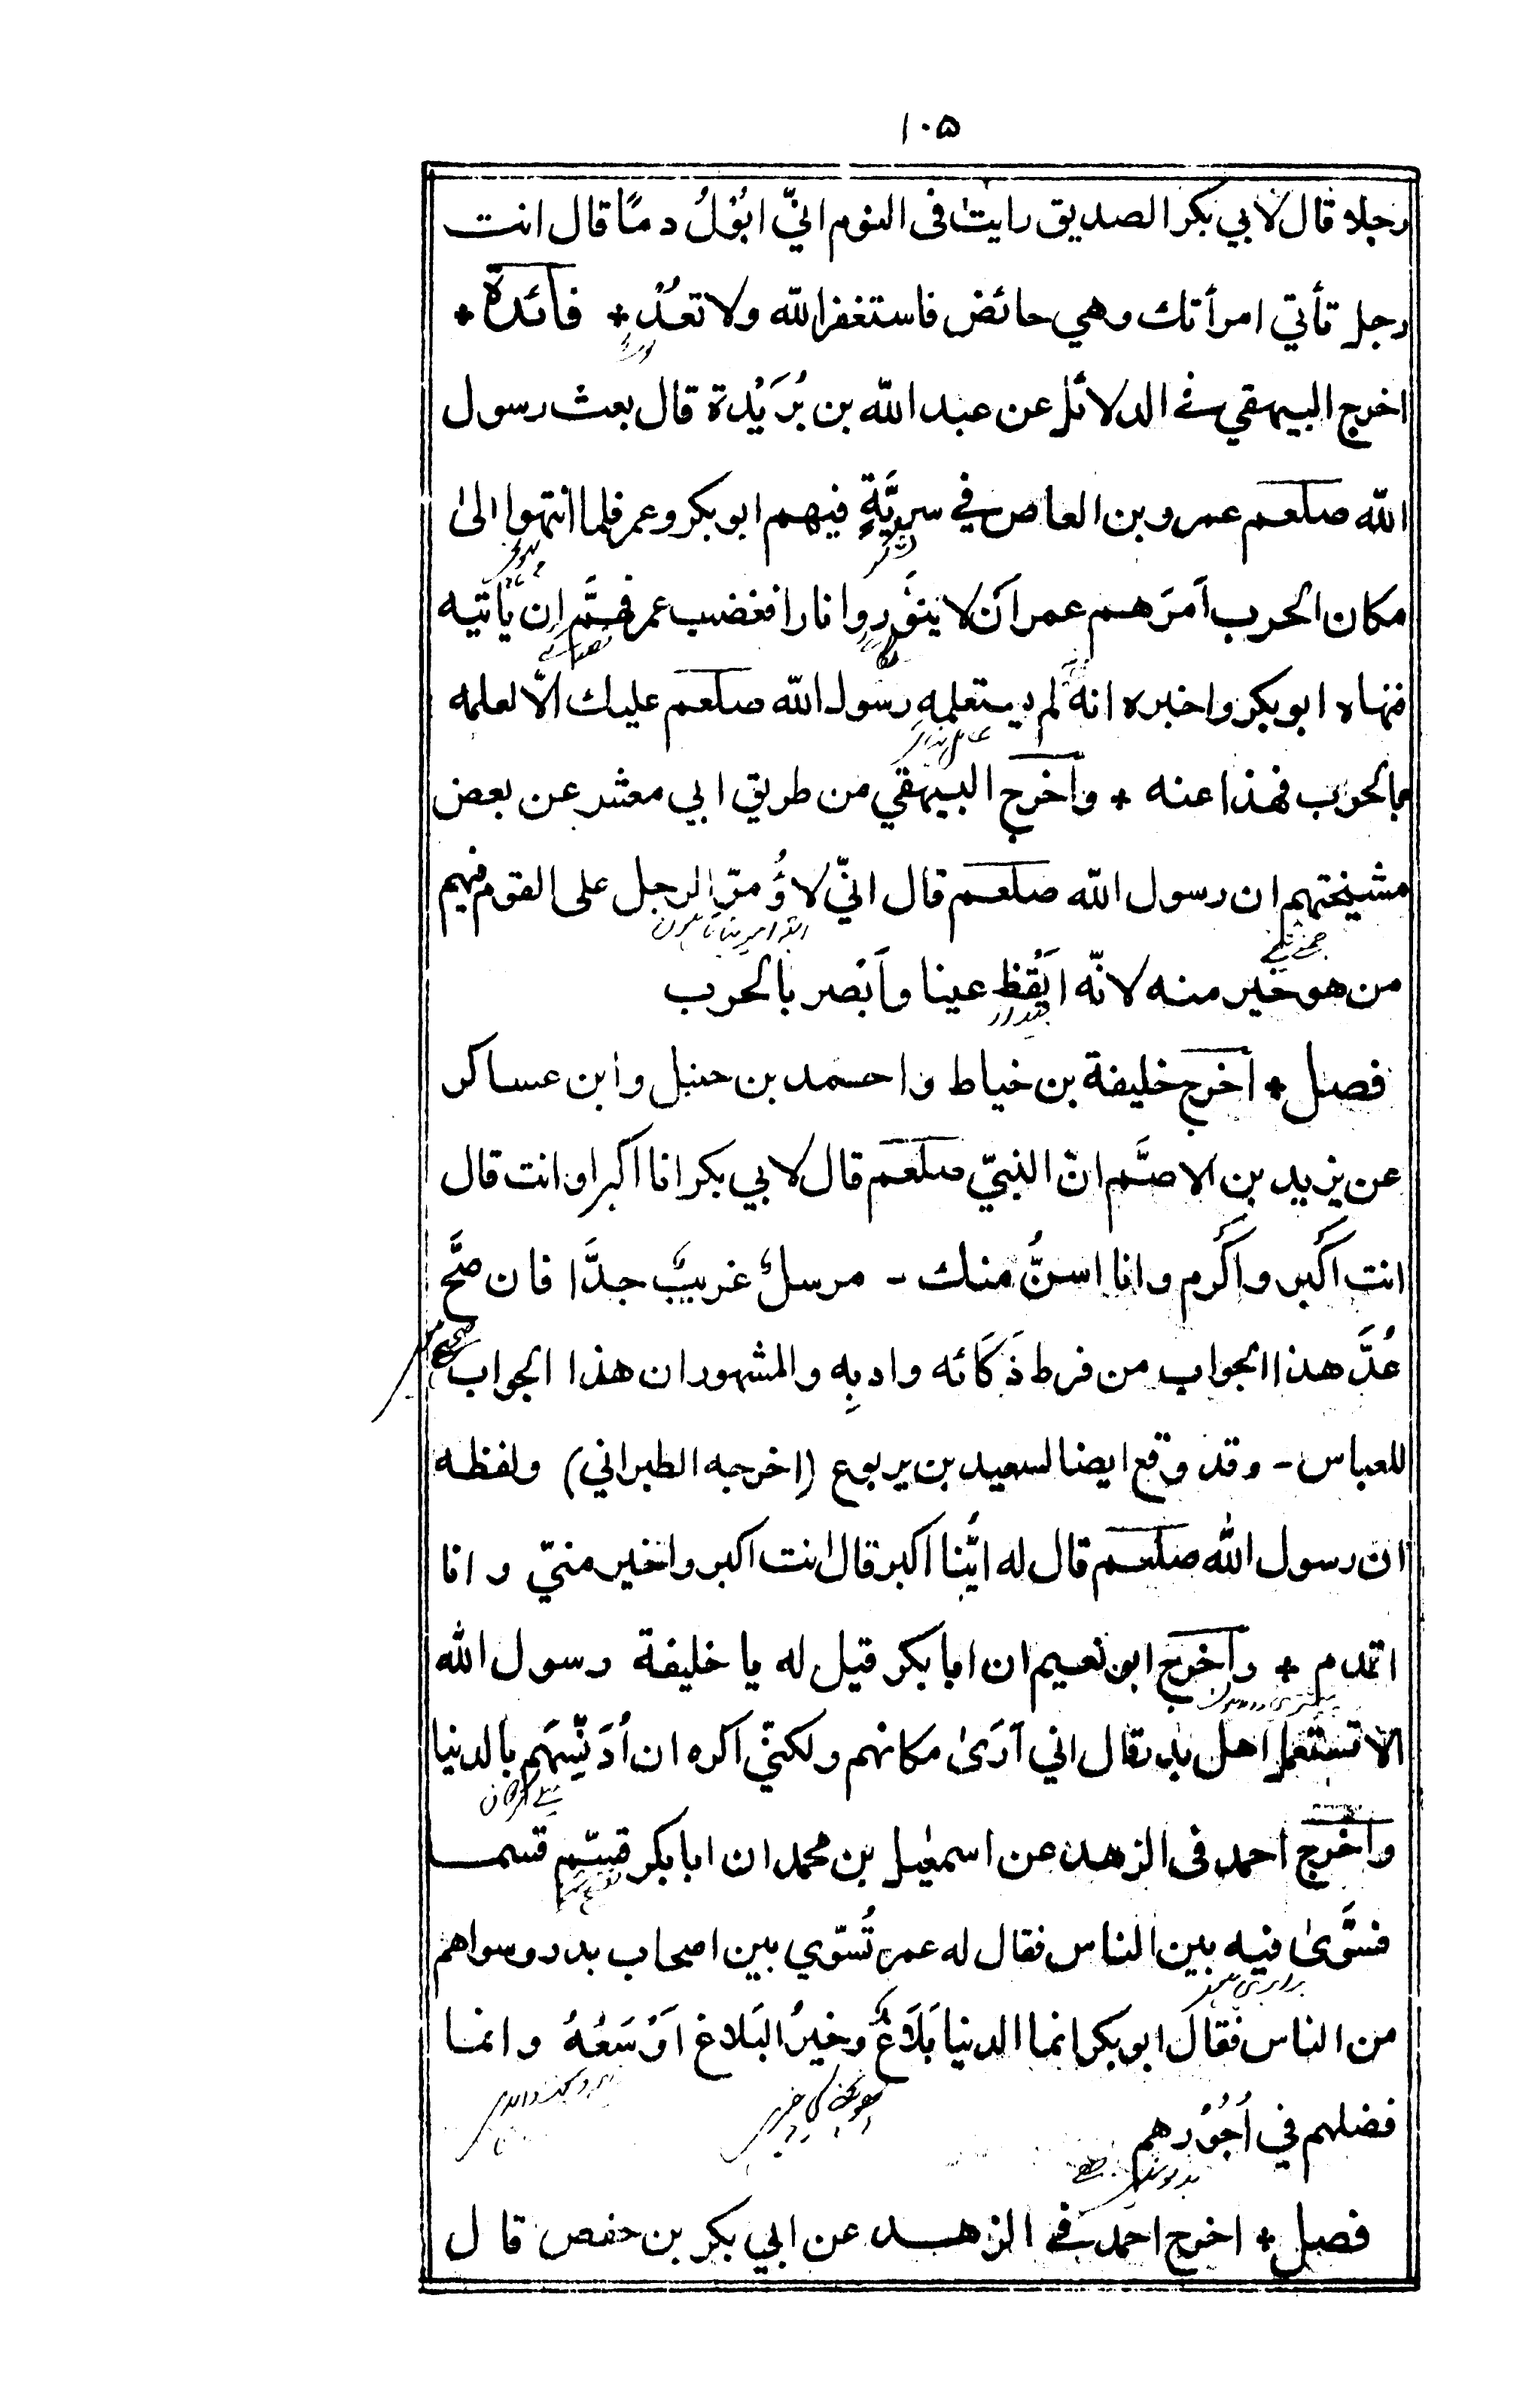 ١٠٥
رجلا قال لابي بكر الصديق رايت في النوم انيّ ابُوْلُ دمًا قال انت
رجل تأتي امرأتك وهي حائض فاستغفر الله ولا تعُدْ + فائدة +
اخرج البيهقي في الدلائل عن عبد الله بن بُرَيْدة قال بعث رسول
الله صلعم عمرو بن العاص في سريَّةٍ فيهم ابو بكر وعمر فلما انتهوا الى
مكان الحرب اَمرَهم عمر اَن لا ينوّروا نارا فغضب عمر فهمَّ ان ياتيه
فنهاه ابو بكر واخبره انه لم يستعمله رسول الله صلعم عليك الّا لعلمه
بالحرب فهذا عنه + واخرج البيهقي من طريق ابي معشر عن بعض
مشيختهم ان رسول الله صلعم قال انيّ لاؤُمرّ الرجل على القوم فيهم
من هو خير منه لانّه ايَْقظ عينا واَبْصر بالحرب
فصل + اخرج خليفة بن خياط واحمد بن حنبل وابن عساكر
عن يزيد بن الاصَّم انّ النبيّ صلعم قال لابي بكر انا اكبر او انت قال
انت اكَبر واكَرم وانا اسنُّ منك - مرسلٌ غريبٌ جدَّا فان صَّح
عُدَّ هذا الجواب من فرط ذَكَائه وادبِه والمشهور ان هذا الجواب
للعباس - وقد وقع ايضا لسعيد بن يربوع (اخرجه الطبراني) ولفظه
ان رسول الله صلعم قال له ايُّنا اكبر قال انت اكبر واخير منيّ وانا
اقدم + واخرج ابو نعيم ان ابا بكر قيل له يا خليفة رسول الله
الا تستعمل اهل بدر قال اني اَرَىٰ مكانهم ولكنيّ اكره ان اُدَنِّسَهُم بالدنيا
واخرج احمد في الزهد عن اسمعٰيل بن محمد ان ابا بكر قسّم قسما
فسَّوىٰ فيه بين الناس فقال له عمر تُسوّي بين اصحاب بدر وسواهم
من الناس فقال ابو بكر انما الدنيا بَلَاغٌ وخيرُ البَلاغ اَوْسَعُهُ وانما
فضلهم في اُجُوْرهم
فصل + اخرج احمد في الزهد عن ابي بكر بن حفص قال